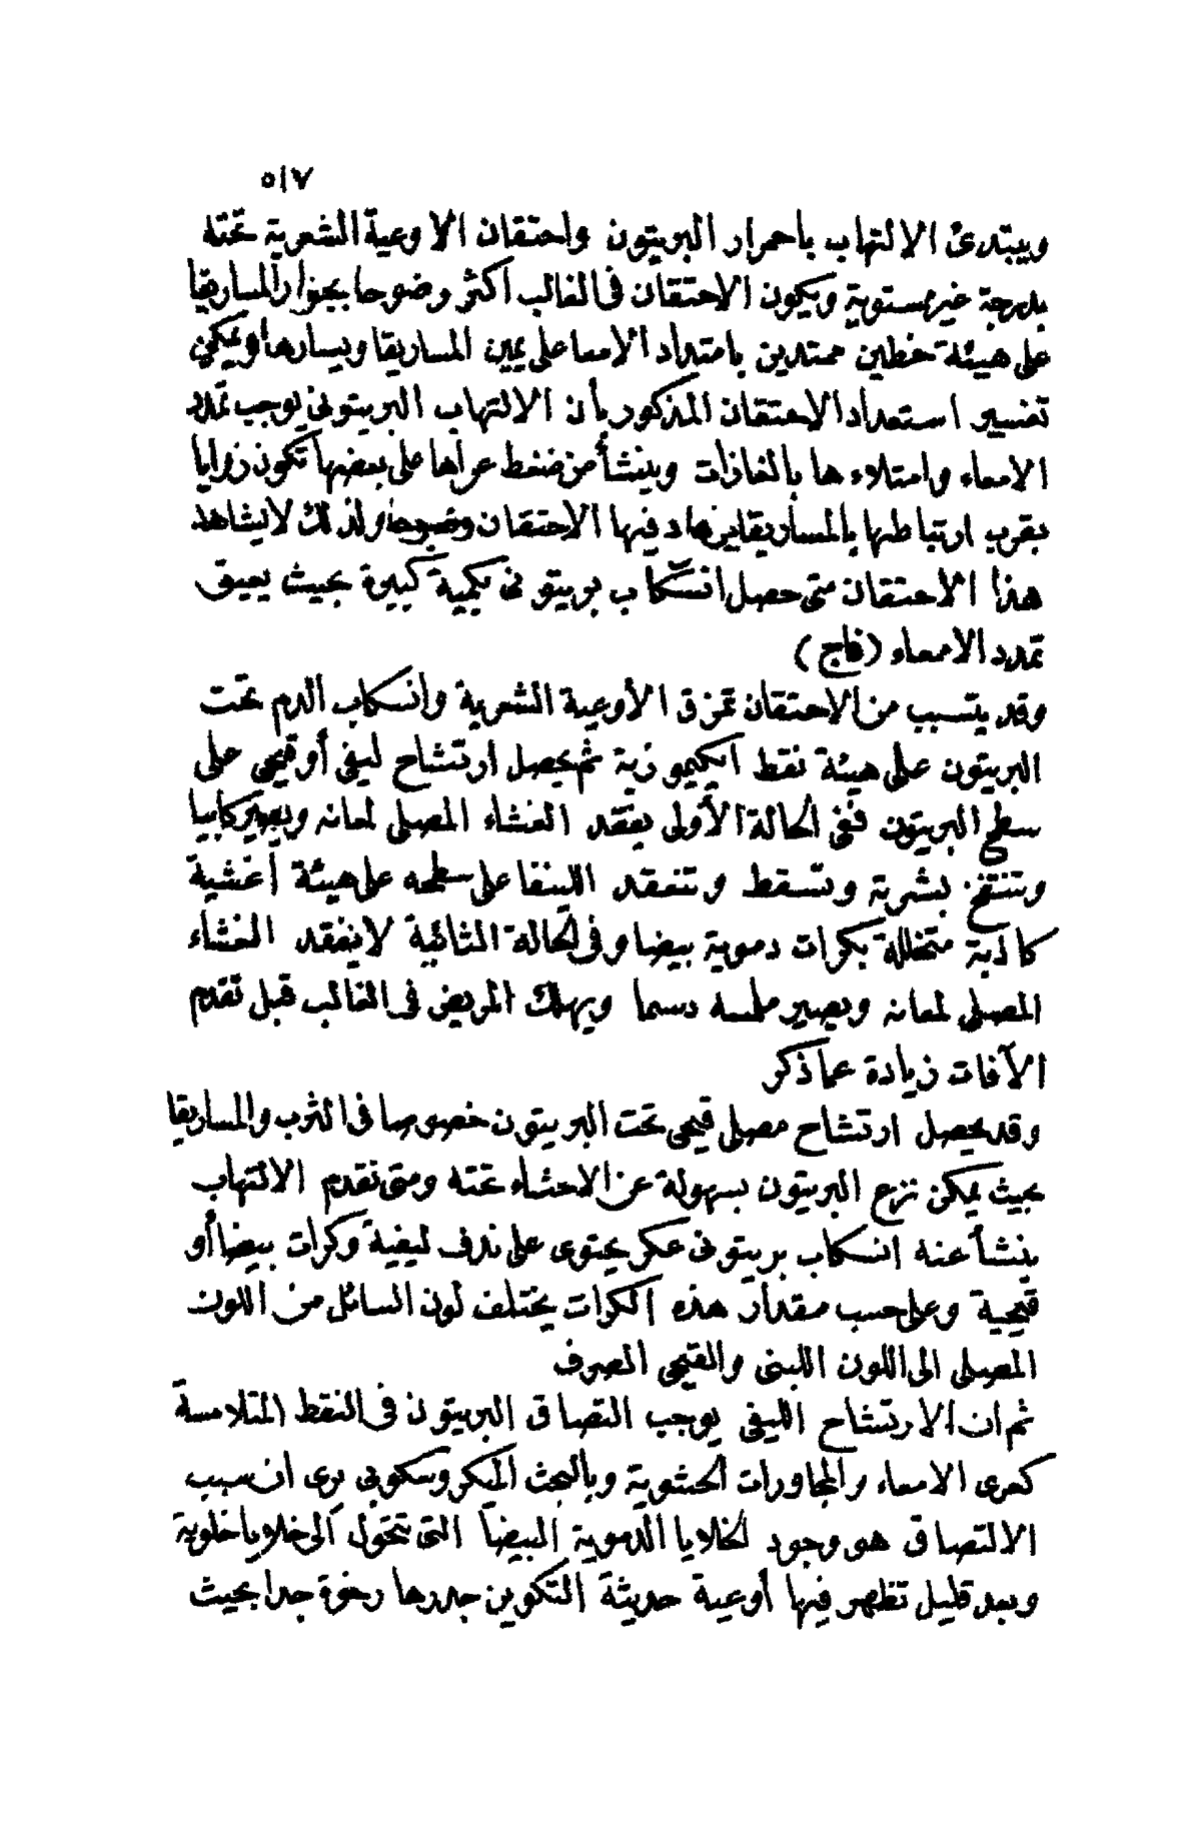 ٥١٧
ويبتدئ الالتهاب باحمرار البريتون واحتقان الاوعية الشعرية تحته
بدرجة غير مستوية ويكون الاحتقان فى الغالب أكثر وضوحا بجوار المساريقا
على هيئة خطين ممتدين بامتداد الامعا على يمين المساريقا ويسارها ويمكن
تفسير استعداد الاحتقان المذكور بأن الالتهاب البريتونى يوجب تمدد
الامعاء وامتلاءها بالغازات وينشأ من ضغط عراها على بعضها تكون زوايا
بقرب ارتباطها بالمساريقا يزداد فيها الاحتقان وضوحا ولذلك لا يشاهد
هذا الاحتقان متى حصل انسكاب بريتونى بكمية كبيرة بحيث يعيق
تمدد الامعاء (فاج)
وقد يتسبب من الاحتقان تمزق الأوعية الشعرية وانسكاب الدم تحت
البريتون على هيئة نقط ايكيموزية ثم يحصل ارتشاح ليفى أو قيحى على
سطح البريتون ففى الحالة الأولى يفقد الغشاء المصلى لمعانه ويصير كابيا
وتنتفخ بشرته وتسقط وتنعقد الليفا على سطحه على هيئة أغشية
كاذبة متخللة بكرات دموية بيضا وفى الحالة الثانية لا يفقد الغشاء
المصلى لمعانه ويصير ملمسه دسما ويهلك المريض فى الغالب قبل تقدم
الآفات زيادة عما ذكر
وقد يحصل ارتشاح مصلى قيحى تحت البريتون خصوصا فى الثرب والمساريقا
بحيث يمكن نزع البريتون بسهولة عن الاحشاء تحته ومتى تقدم الالتهاب
ينشأ عنه انسكاب بريتونى عكر يحتوى على ندف ليفية وكرات بيضا أو
قيحية وعلى حسب مقدار هذه الكرات يختلف لون السائل من اللون
المصلى الى اللون اللبنى والقيحى الصرف
ثم ان الارتشاح الليفى يوجب التصاق البريتون فى النقط المتلامسة
كعرى الامعاء والمجاورات الحشوية وبالبحث الميكروسكوبى يرى ان سبب
الالتصاق هو وجود الخلايا الدموية البيضا التى تتحول الى خلايا خلوية
وبعد قليل تظهر فيها أوعية حديثة التكوين جدرها رخوة جدا بحيث